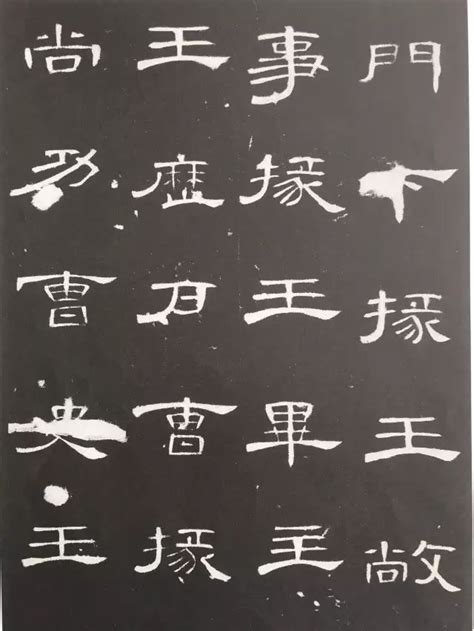 門下掾王敞
事掾王畢主
王歷戶曹掾
尚功曹史王